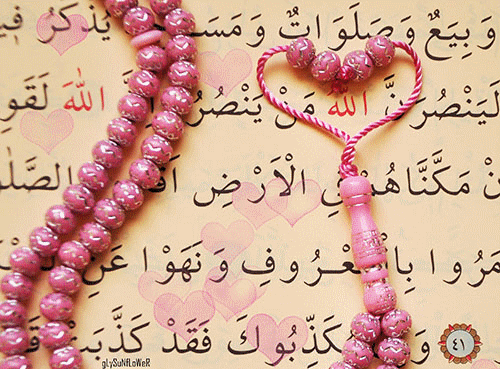 وَبِيَعٌ وَصَلَوَاتٌ وَمَسَـ يُذْكَرُ فِيهَـ
لَيَنْصُرَنَّ اللّٰهُ مَنْ يَنْصُرُ اللّٰهَ لَقَوِ
نْ مَكَّنَّاهُمْ فِي الْاَرْضِ اَقَا الصَّلٰو
مَرُوا بِالْمَعْرُوفِ وَنَهَوْا عَنِ الْـ
وَ يُكَذِّبُوكَ فَقَدْ كَذَّبَتْ قَـ
٤١
gLySuNfLoWeR